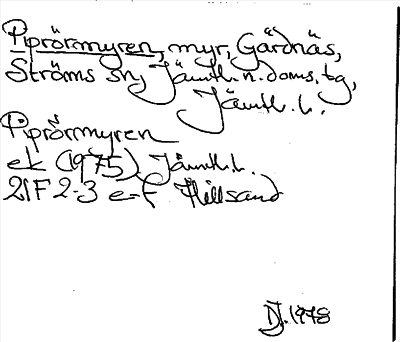 Piprörmyren, myr, Gärdnäs,
Ströms sn, Jämtl. n. doms. tg,
Jämtl. l.
Piprörmyren
ek (1975) Jämtl. l.
21F 2-3 e-f Hillsand
DJ. 1978